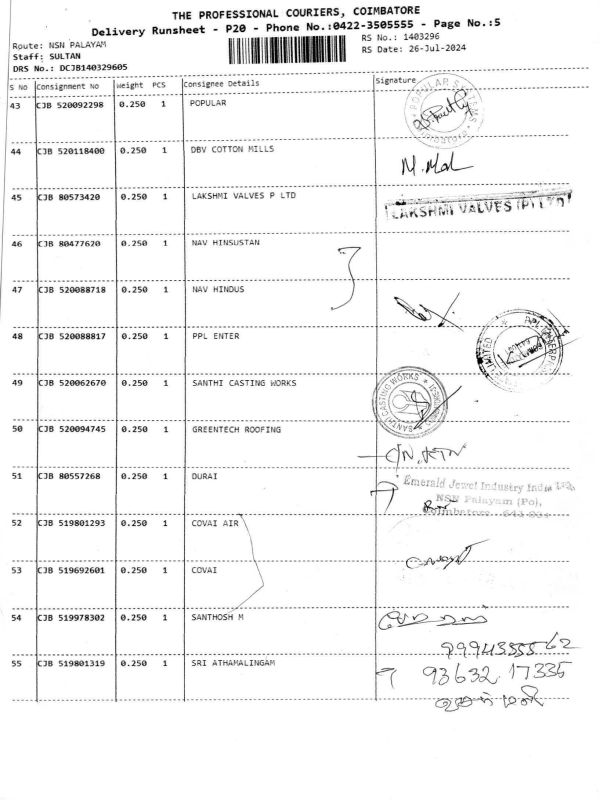 THE PROFESSIONAL COURIERS, COIMBATORE
Delivery Runsheet - P20 - Phone No.:0422-3505555 - Page No.:5
Route: NSN PALAYAM
Staff: SULTAN
DRS No.: DCJB140329605
RS No.: 1403296
RS Date: 26-Jul-2024
S No Consignment No Weight PCS Consignee Details Signature
43 CJB 520092298 0.250 1 POPULAR
44 CJB 520118400 0.250 1 DBV COTTON MILLS
45 CJB 80573420 0.250 1 LAKSHMI VALVES P LTD
LAKSHMI VALVES (P) LTD
46 CJB 80477620 0.250 1 NAV HINSUSTAN
47 CJB 520088718 0.250 1 NAV HINDUS
48 CJB 520088817 0.250 1 PPL ENTER
49 CJB 520062670 0.250 1 SANTHI CASTING WORKS
SANTHI CASTING WORKS
50 CJB 520094745 0.250 1 GREENTECH ROOFING
51 CJB 80557268 0.250 1 DURAI
Emerald Jewel Industry India Ltd.
NSN Palayam (Po),
Coimbatore
52 CJB 519801293 0.250 1 COVAI AIR
53 CJB 519692601 0.250 1 COVAI
54 CJB 519978302 0.250 1 SANTHOSH M
55 CJB 519801319 0.250 1 SRI ATHAMALINGAM
93632 17335